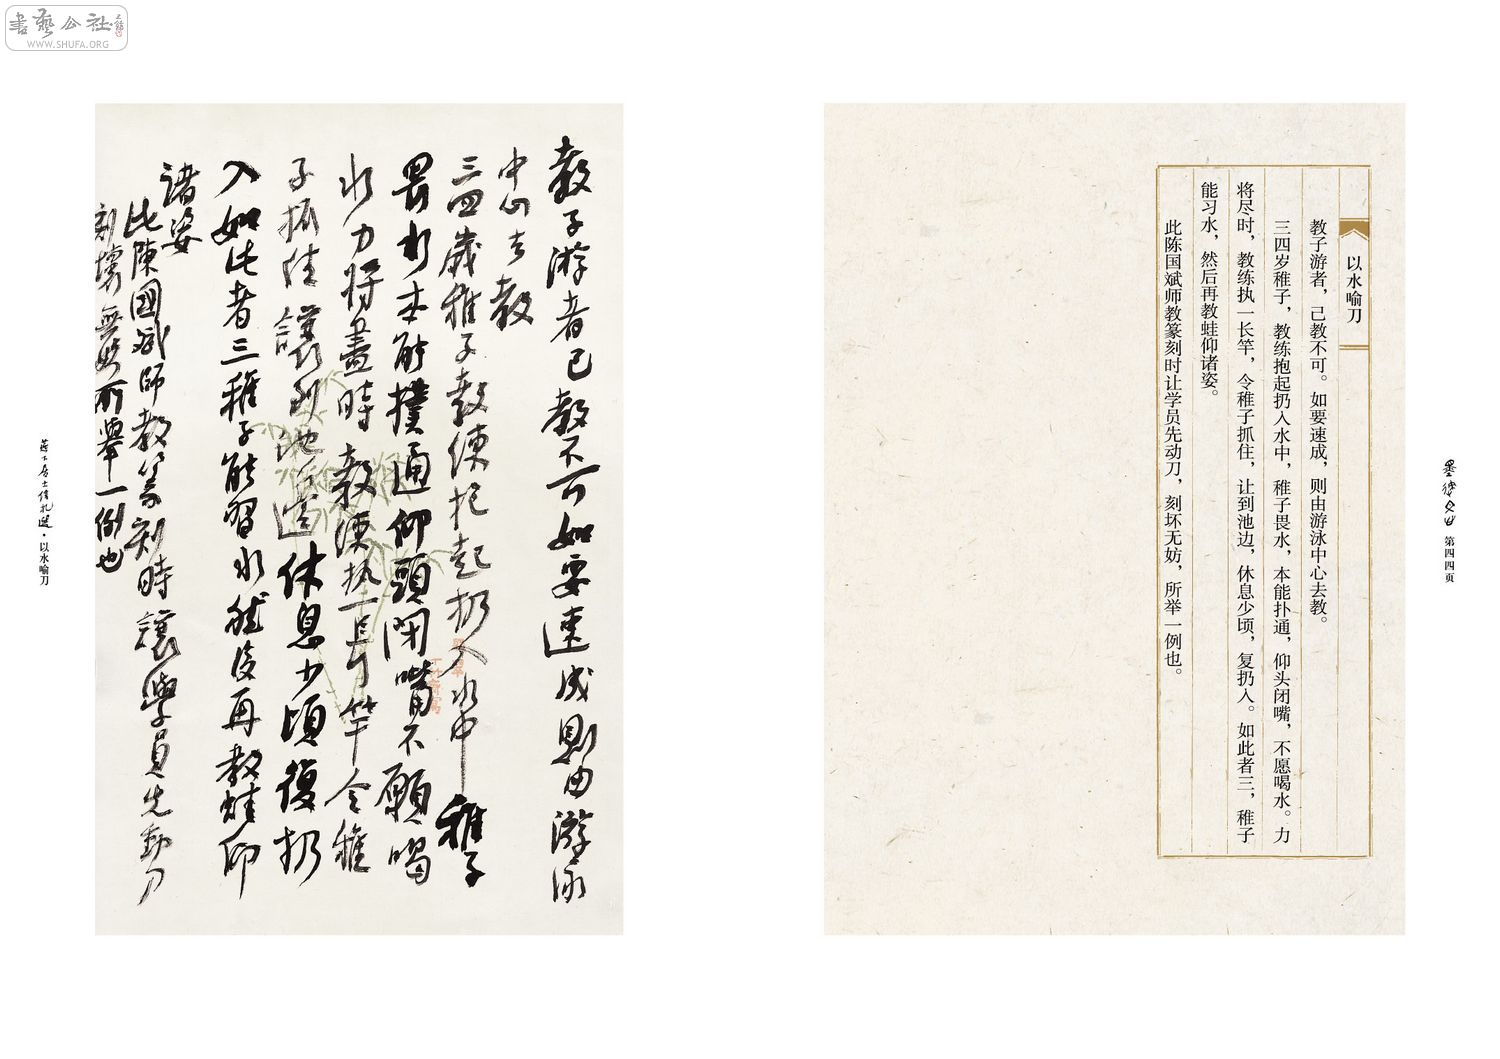 書藝公社
WWW.SHUFA.ORG
以水喻刀
教子游者，己教不可。如要速成，则由游泳中心去教。
三四岁稚子，教练抱起扔入水中，稚子畏水，本能扑通，仰头闭嘴，不愿喝水。力
将尽时，教练执一长竿，令稚子抓住，让到池边，休息少顷，复扔入。如此者三，稚子
能习水，然后再教蛙仰诸姿。
此陈国斌师教篆刻时让学员先动刀，刻坏无妨，所举一例也。
第四四页
教子游者己教不可如要速成則由游泳
中心去教
三四歲稚子教練抱起扔入水中稚子
畏水本能撲通仰頭閉嘴不願喝
水力將盡時教練执一長竿令稚
子抓住讓到池邊休息少頃復扔
入如此者三稚子能習水然後再教蛙仰
諸姿
此陳國斌師教篆刻時讓學員先動刀
刻壞無妨所舉一例也
·以水喻刀